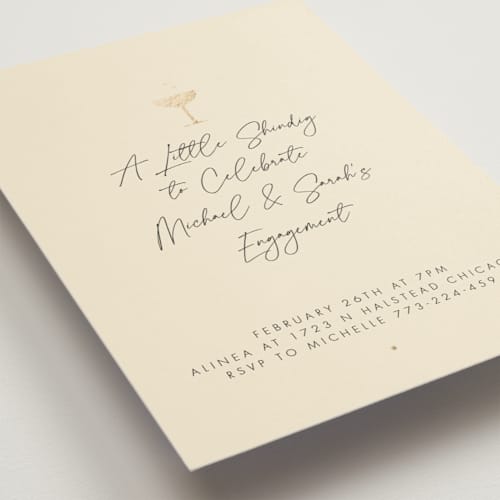 A Little Shindig
to Celebrate
Michael & Sarah's
Engagement
FEBRUARY 26TH AT 7PM
ALINEA AT 1723 N HALSTEAD CHICAGO
RSVP TO MICHELLE 773-224-459